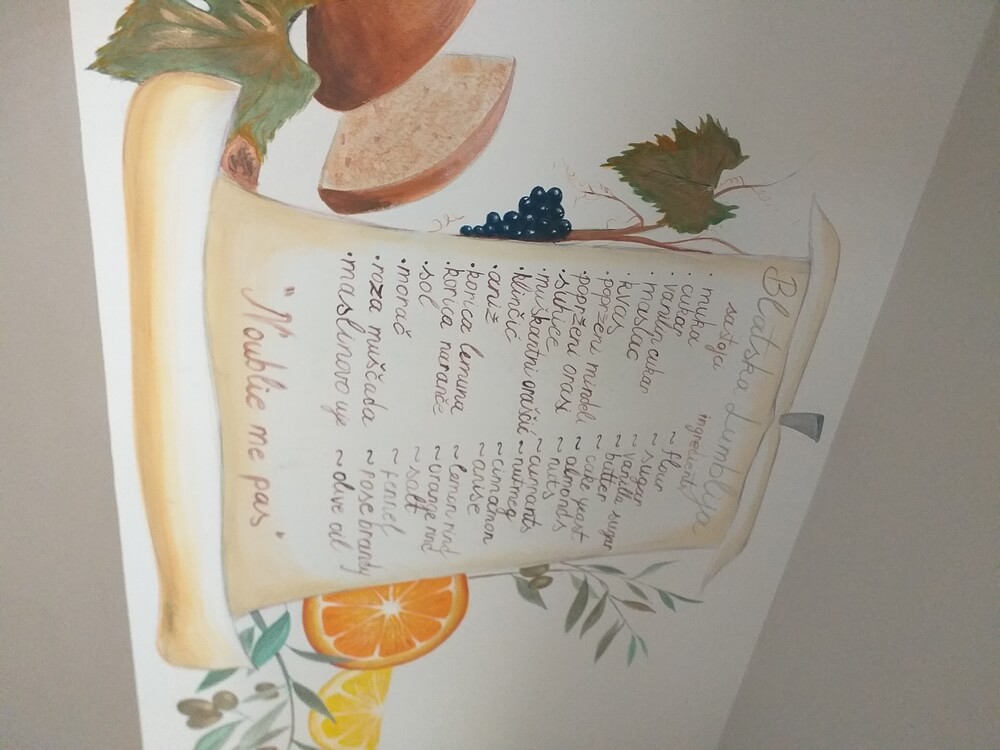 Blatska Lumblija
sastojci ingredients
• muka ~ flour
• cukar ~ sugar
• vanilin cukar ~ vanilla sugar
• maslac ~ butter
• kvas ~ cake yeast
• poprženi mindeli ~ almonds
• poprženi orasi ~ nuts
• ~ currants
• muškantni oraščić ~ nutmeg
• klinčić ~ cinnamon
• aniž ~ anise
• korica lemuna ~ lemon rind
• korica naranče ~ orange rind
• sol ~ salt
• morač ~ fennel
• roza muščada ~ rose brandy
• maslinovo uje ~ olive oil
"N'oublie me pas"